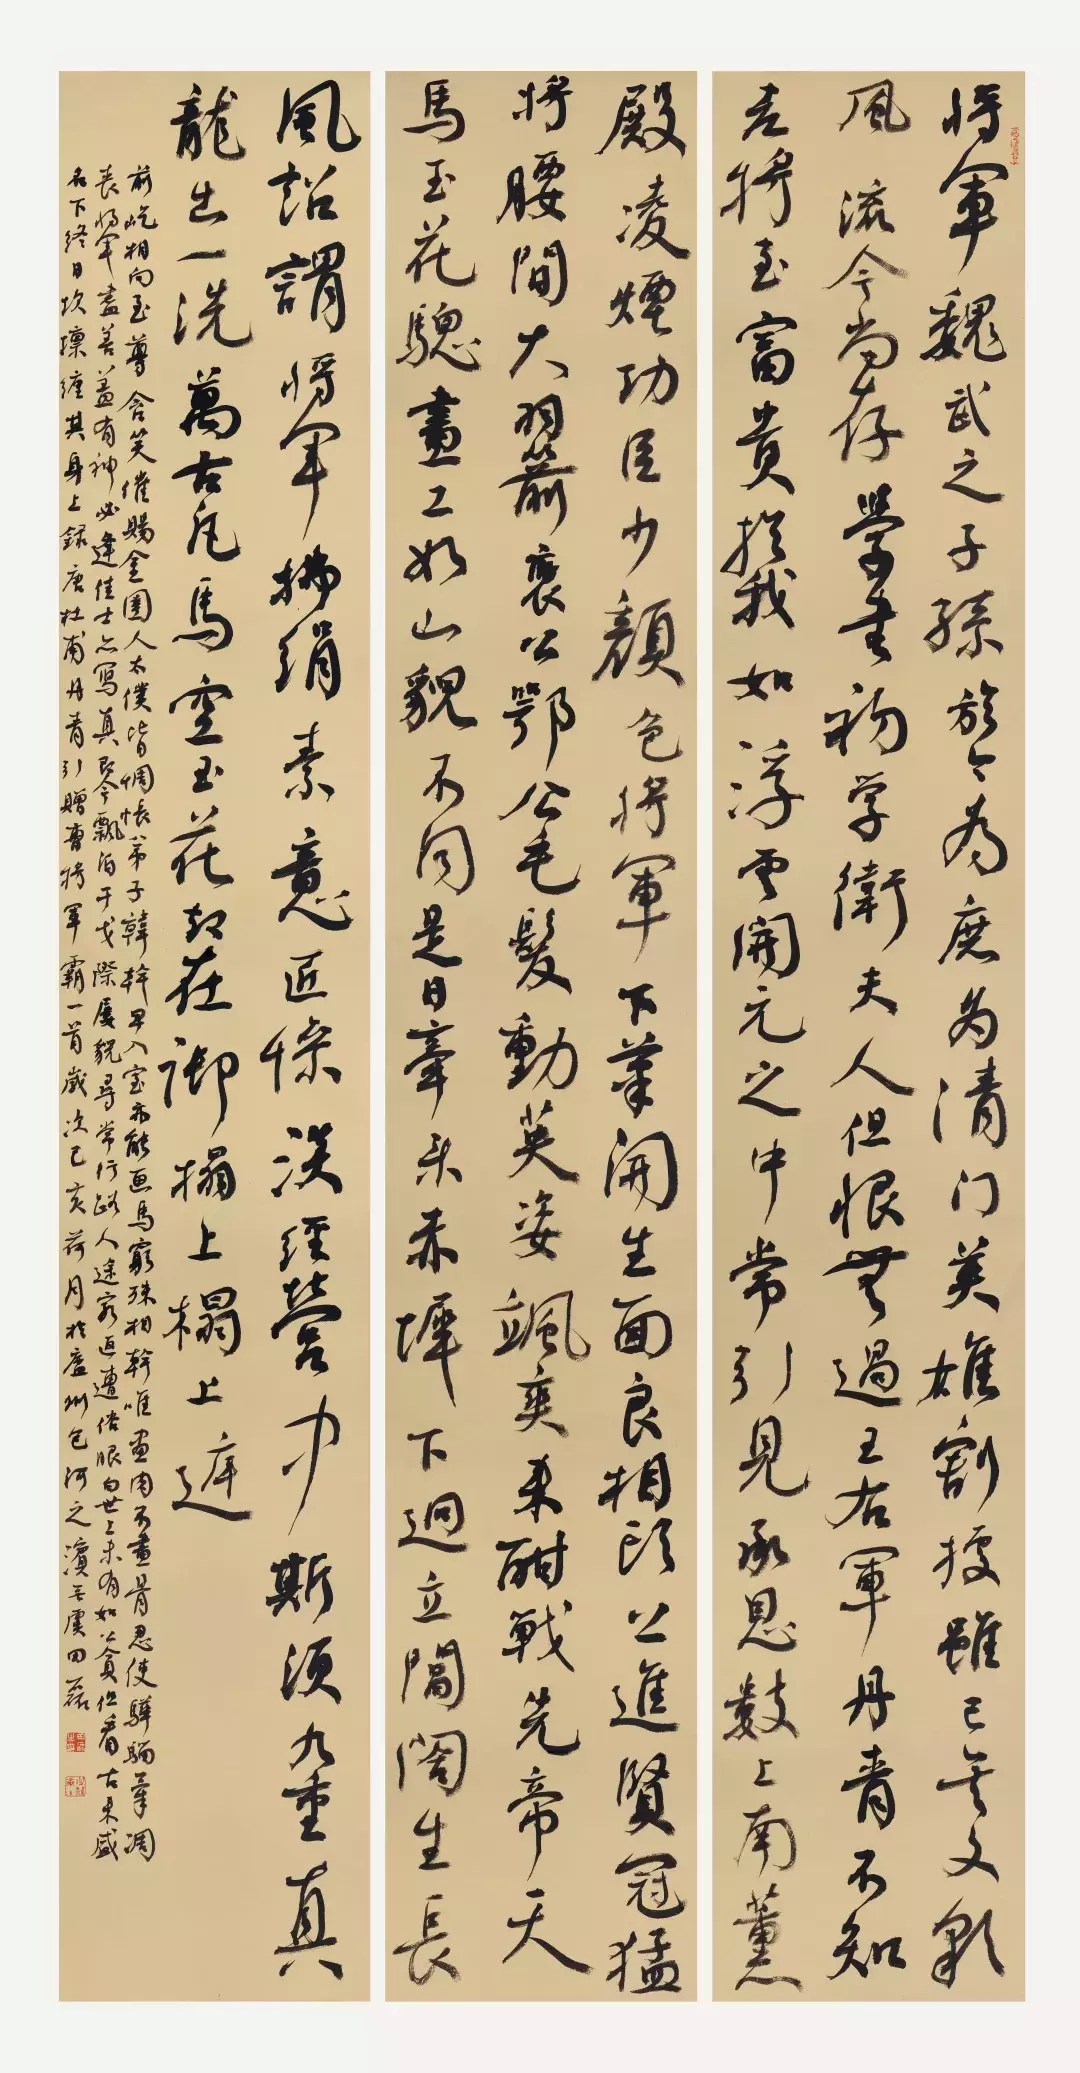 將軍魏武之子孫於今为庶为清门英雄割據雖已矣文彩
風流今尚存學書初学衛夫人但恨無過王右軍丹青不知
老將至富貴於我如浮雲開元之中常引見承恩數上南薰
殿凌煙功臣少顏色將軍下筆開生面良相頭上進賢冠猛
將腰間大羽箭褒公鄂公毛髮動英姿颯爽来酣戰先帝天
馬玉花驄畫工如山貌不同是日牽来赤墀下迥立閶闔生長
風詔謂將軍拂絹素意匠慘淡經營中斯須九重真
龍出一洗萬古凡馬空玉花却在御榻上榻上庭
前屹相向至尊含笑催賜金圉人太僕皆惆悵弟子韓幹早入室亦能画馬窮殊相幹唯畫肉不畫骨忍使驊騮氣凋
喪將軍畫善蓋有神必逢佳士亦寫真即今飄泊干戈際屢貌尋常行路人途窮返遭俗眼白世上未有如公貧但看古來盛
名下終日坎壈纏其身上錄唐杜甫丹青引贈曹將軍霸一首歲次己亥荷月於廬州包河之濱田磊